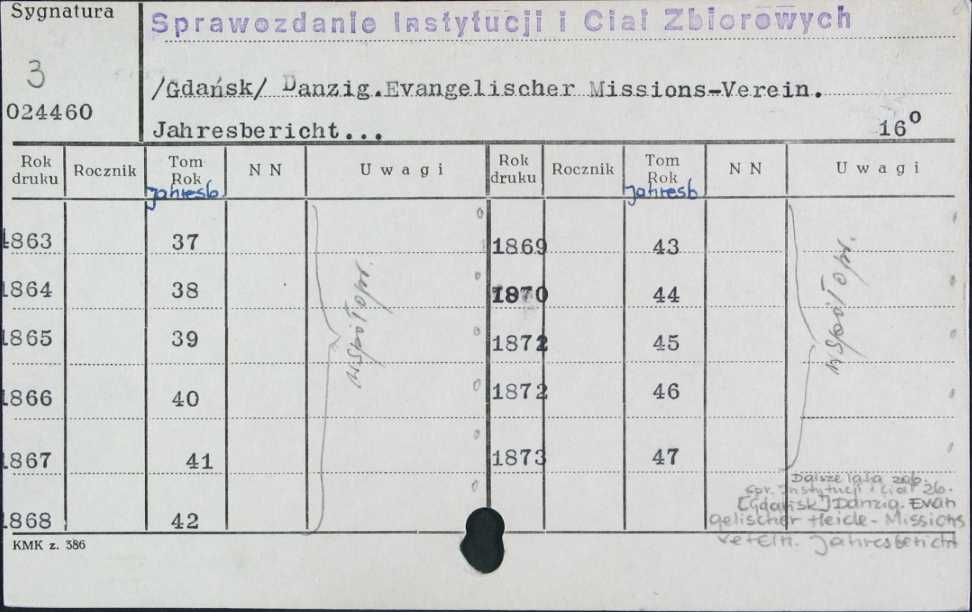 Sygnatura
Sprawozdanie Instytucji i Ciał Zbiorowych
3
024460
/Gdańsk/ Danzig.Evangelischer Missions-Verein.
Jahresbericht... 16°
Rok druku Rocznik Tom Rok NN Uwagi Rok druku Rocznik Tom Rok NN Uwagi
Jahresb. Jahresb
1863 37 1869 43
1864 38 1870 44
1865 39 1872 45
1866 40 1872 46
1867 41 1873 47
1868 42
współopr. współopr.
Dalsze lata zob.
Spr. Instytucji i Ciał Zb.
[Gdańsk] Danzig. Evan
gelischer Heide-Missions
Verein. Jahresbericht
KMK z. 386